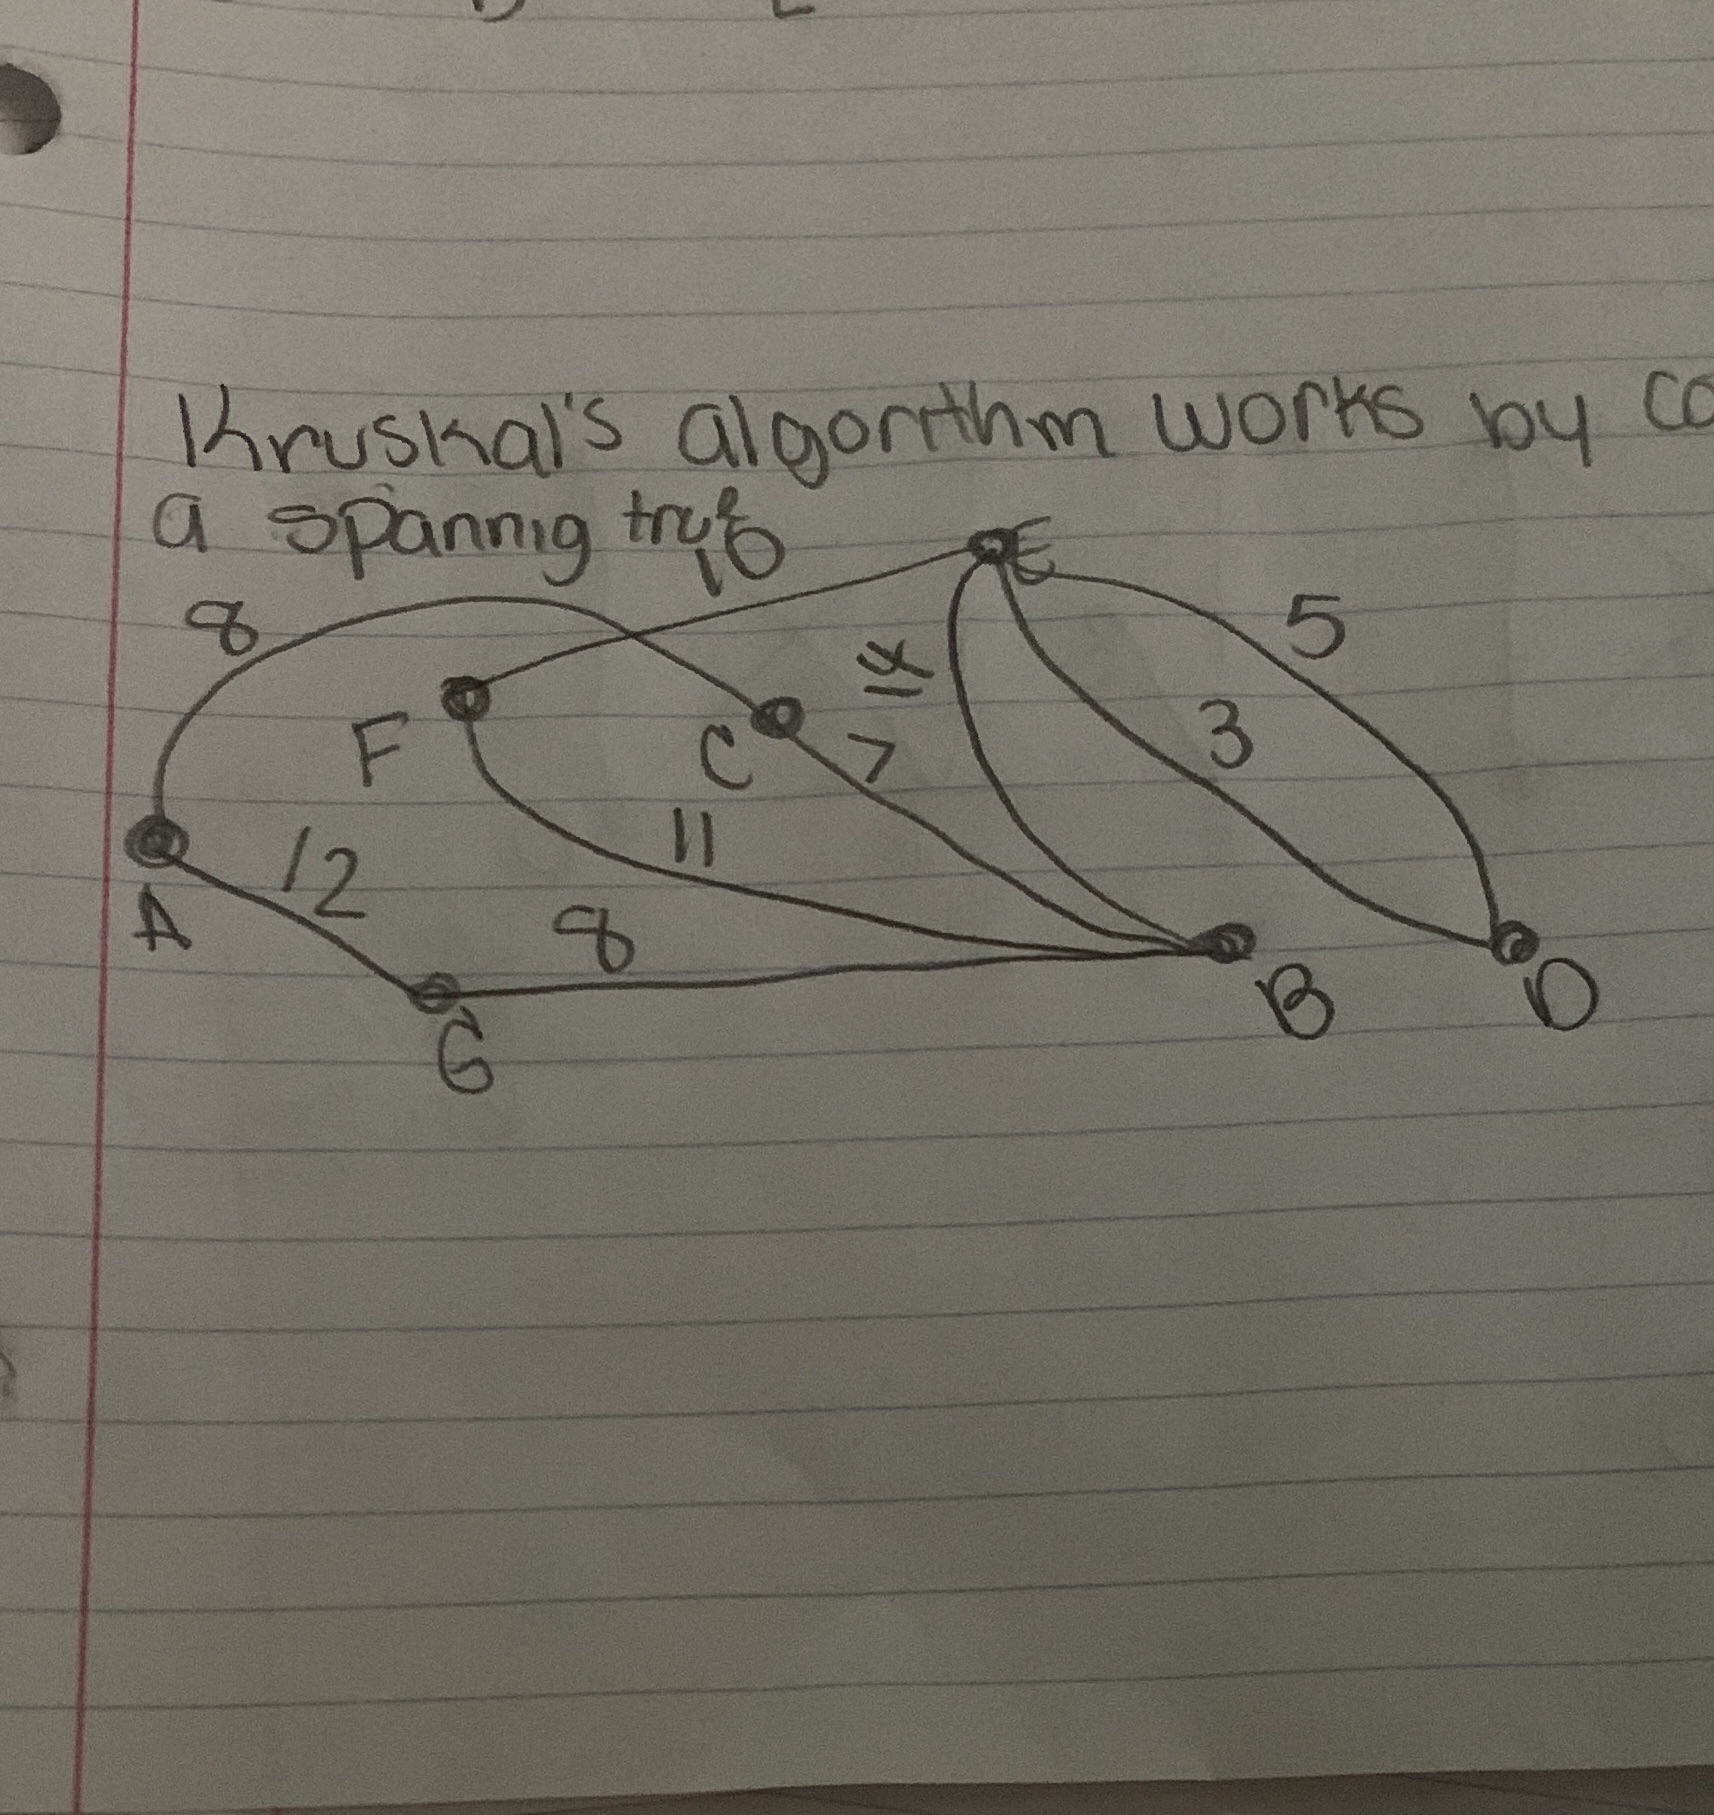 Kruskal's algorithm works by co
a spannig tree
16
E
8
5
14
3
F
C
7
11
A
12
8
B
D
G